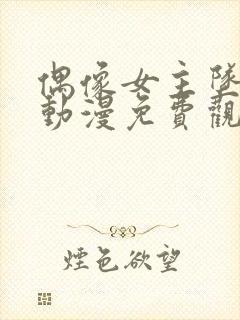 偶像女主墜
動漫免費觀
煙色欲望